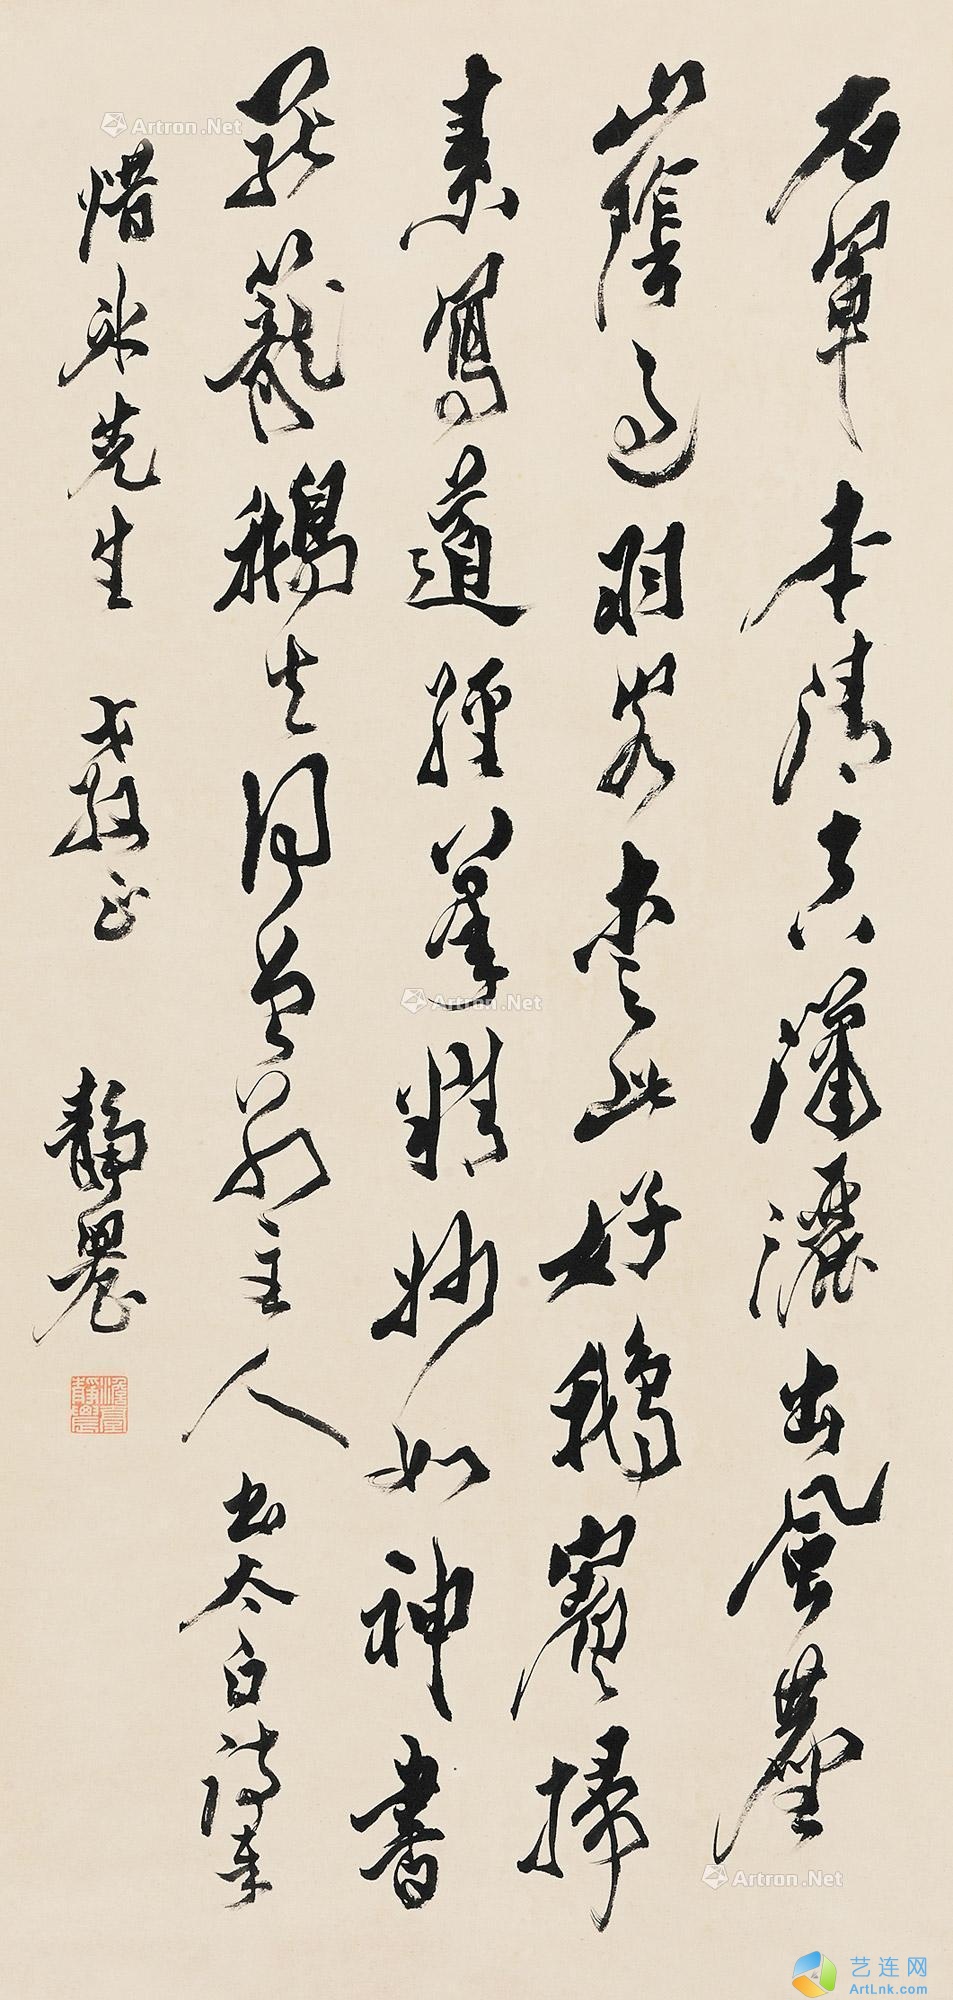 右軍本清真瀟灑出風塵
山陰過羽客愛此好鵝賓掃
素寫道經筆精妙如神書
罷籠鵝去何曾別主人 書太白詩奉
惜冰先生 大教正 靜農
澹臺靜農
Artron.Net
Artron.Net
Artron.Net
艺连网
ArtLnk.com